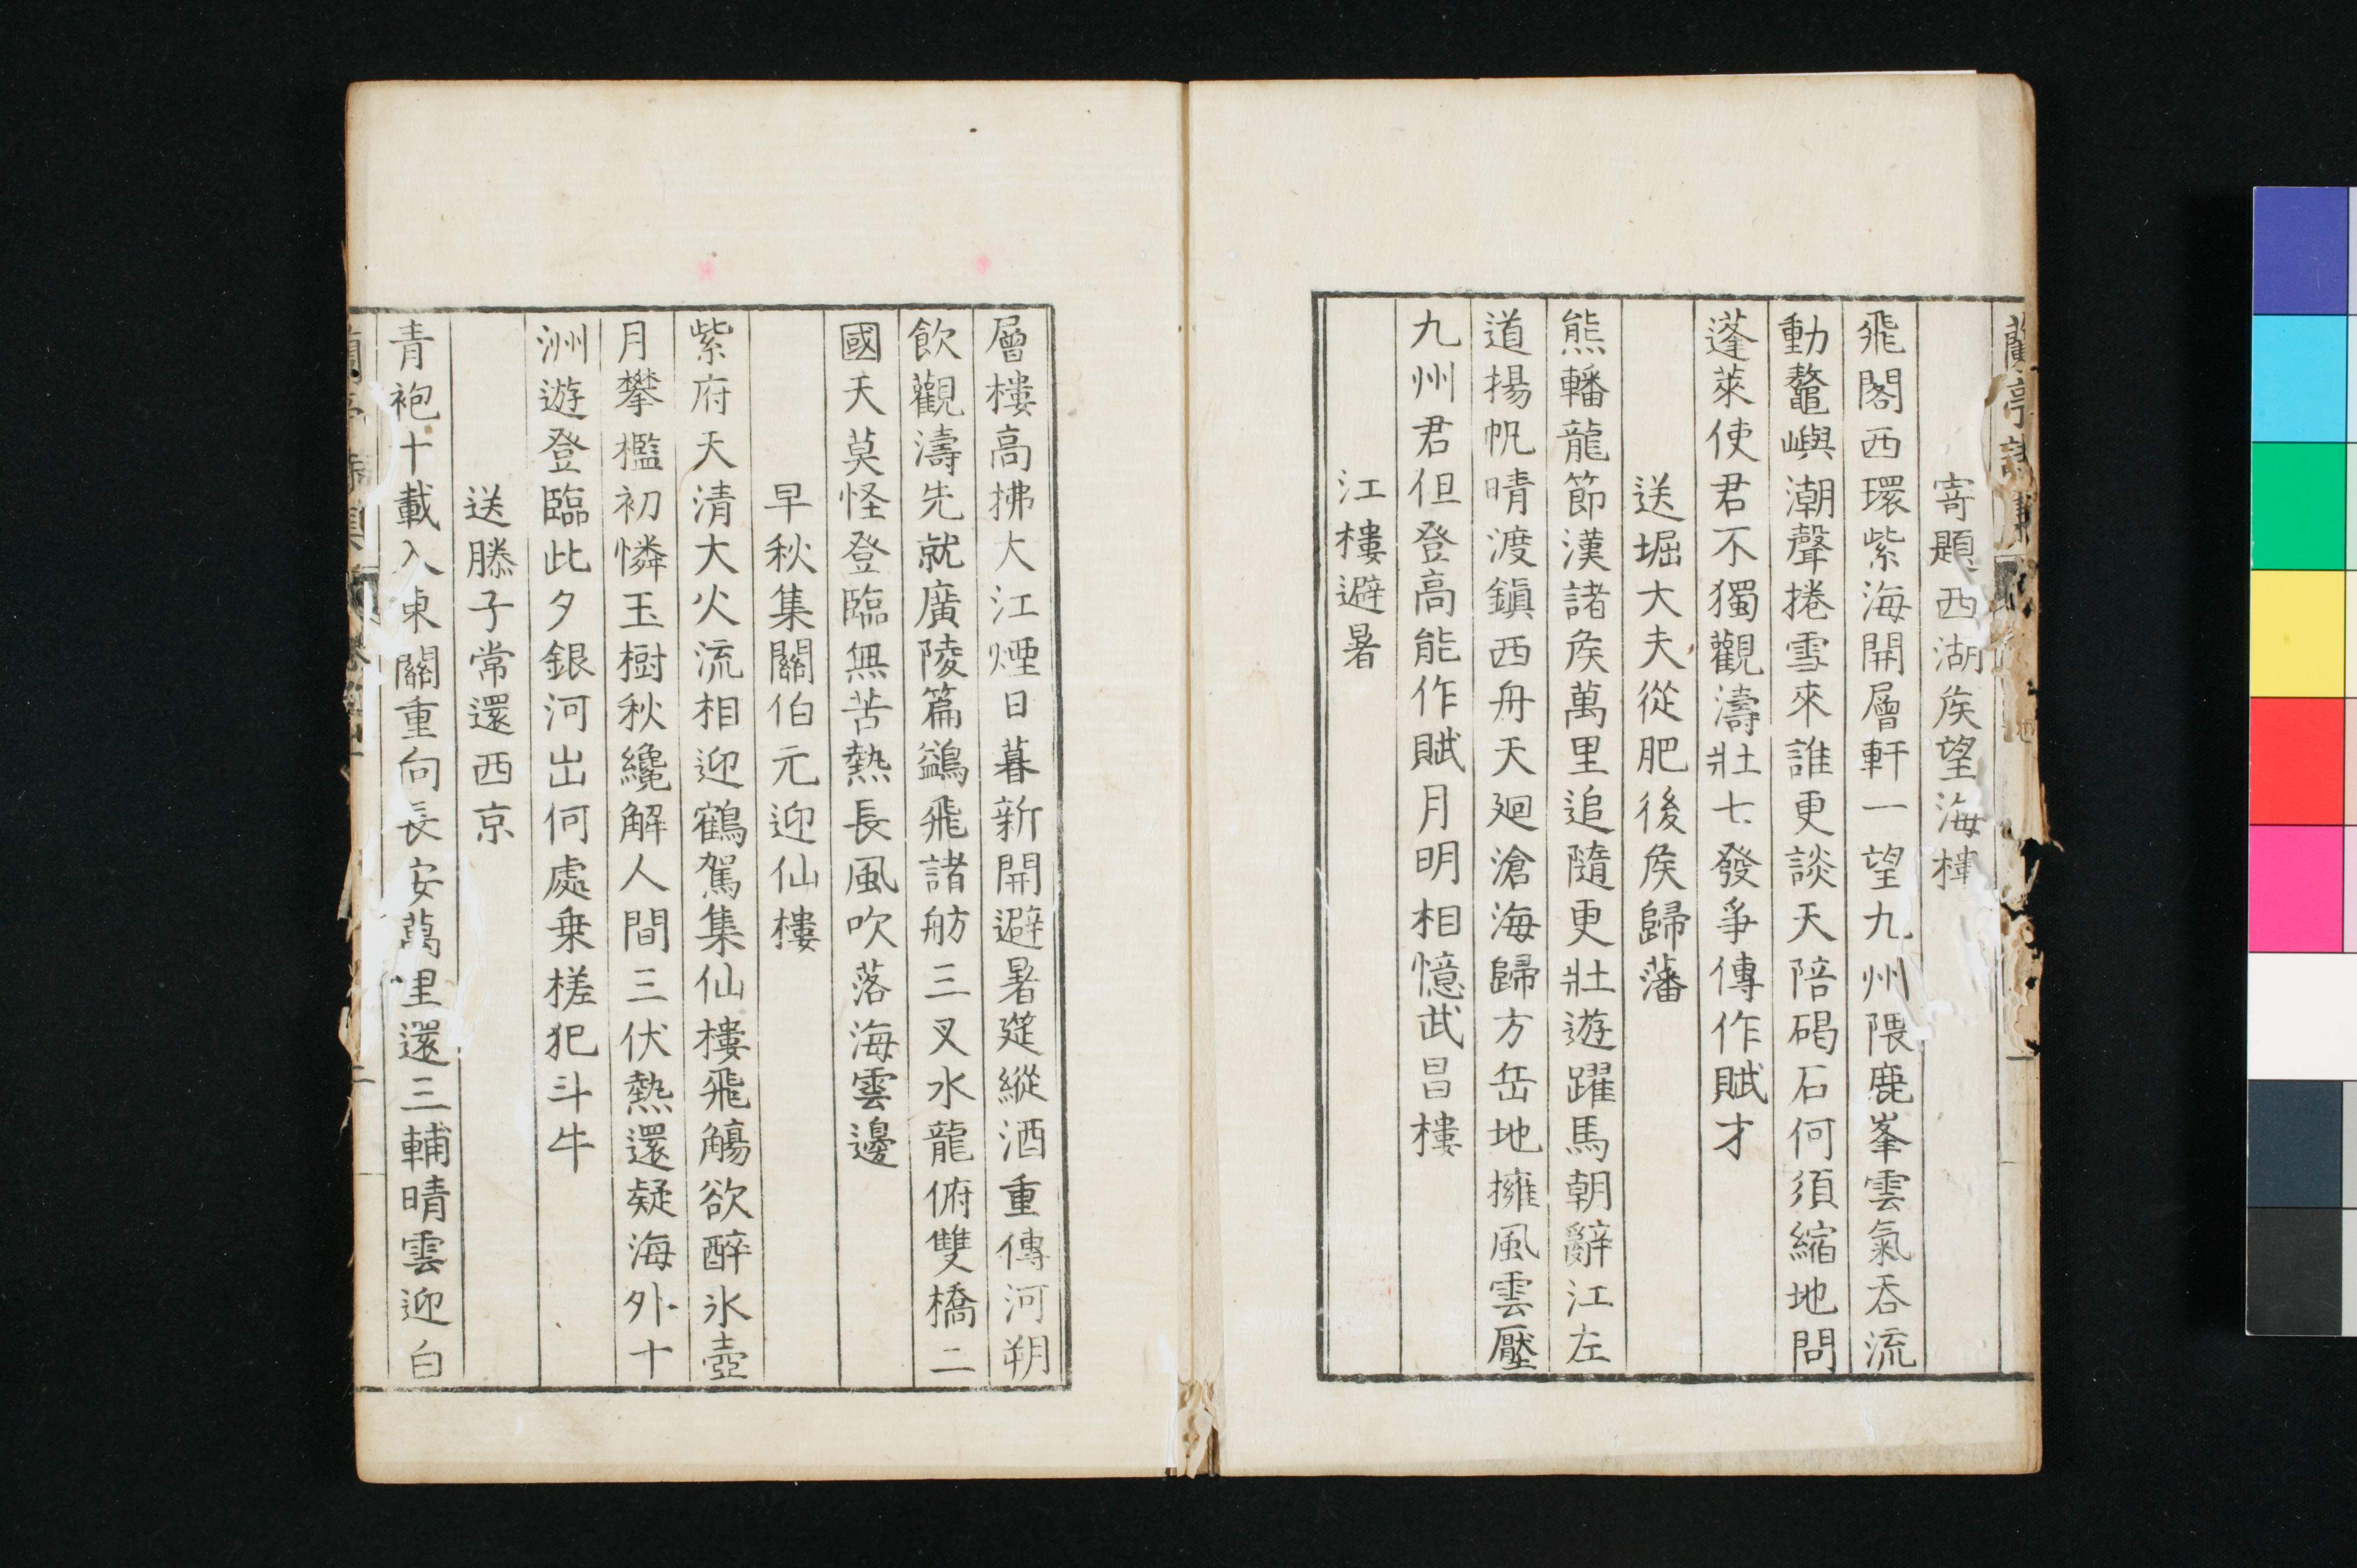 寄題西湖矦望海樓
飛閣西環紫海開層軒一望九州隈鹿峯雲氣吞流
動鼇嶼潮聲捲雪來誰更談天陪碣石何須縮地問
蓬萊使君不獨觀濤壯七發爭傳作賦才
送堀大夫從肥後矦歸藩
熊轓龍節漢諸矦萬里追隨更壯遊躍馬朝辭江左
道揚帆晴渡鎭西舟天廻滄海歸方岳地擁風雲壓
九州君但登高能作賦月明相憶武昌樓
江樓避暑
層樓高拂大江煙日暮新開避暑筵縱酒重傳河朔
飲觀濤先就廣陵篇鷁飛諸舫三叉水龍俯雙橋二
國天莫怪登臨無苦熱長風吹落海雲邊
早秋集關伯元迎仙樓
紫府天清大火流相迎鶴駕集仙樓飛觴欲醉氷壺
月攀檻初憐玉樹秋纔解人間三伏熱還疑海外十
洲遊登臨此夕銀河出何處乗槎犯斗牛
送滕子常還西京
青袍十載入東關重向長安萬里還三輔晴雲迎白